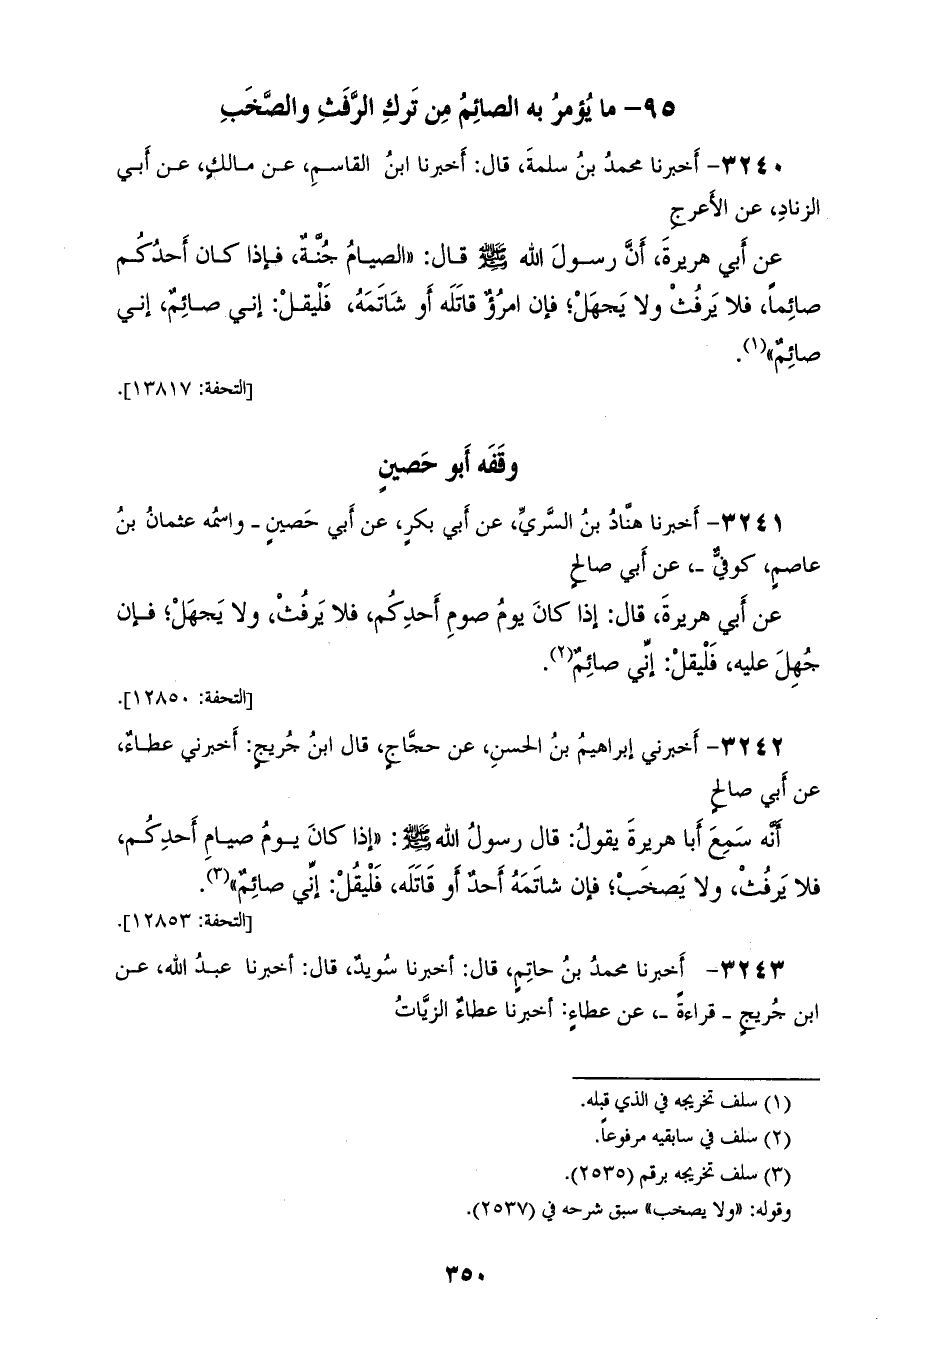 ٩٥- ما يُؤمرُ به الصائِمُ مِن تَركِ الرَّفَثِ والصَّخَبِ
٣٢٤٠- أَخبرنا محمدُ بنُ سلمةَ، قال: أَخبرنا ابنُ القاسمِ، عن مالكٍ، عن أَبي
الزنادِ، عن الأَعرجِ
عن أَبي هريرةَ، أَنَّ رسولَ الله ﷺ قال: «الصيامُ جُنَّةٌ، فإذا كان أَحدُكُم
صائِماً، فلا يَرفُثْ ولا يَجهَلْ؛ فإن امرُؤٌ قاتَلَه أَو شَاتَمَهُ، فَلْيقلْ: إني صائِمٌ، إني
صائِمٌ»(١).
[التحفة: ١٣٨١٧].
وقَفَه أَبو حَصينٍ
٣٢٤١- أَخبرنا هنَّادُ بنُ السَّريِّ، عن أَبي بكرٍ، عن أَبي حَصينٍ - واسمُه عثمانُ بنُ
عاصمٍ، كوفيٌّ -، عن أَبي صالحٍ
عن أَبي هريرةَ، قال: إذا كانَ يومُ صومِ أَحدِكُم، فلا يَرفُثْ، ولا يَجهَلْ؛ فإن
جُهِلَ عليه، فَلْيقلْ: إنِّي صائِمٌ(٢).
[التحفة: ١٢٨٥٠].
٣٢٤٢- أَخبرني إبراهيمُ بنُ الحسنِ، عن حجَّاجٍ، قال ابنُ جُريجٍ: أَخبرني عطاءٌ،
عن أَبي صالحٍ
أَنَّه سَمِعَ أَبا هريرةَ يقولُ: قال رسولُ الله ﷺ: «إذا كانَ يومُ صيامِ أَحدِكُم،
فلا يَرفُثْ، ولا يَصخَبْ؛ فإن شاتَمَهُ أَحدٌ أَو قَاتَلَه، فَلْيقُلْ: إنِّي صائِمٌ»(٣).
[التحفة: ١٢٨٥٣].
٣٢٤٣- أَخبرنا محمدُ بنُ حاتمٍ، قال: أخبرنا سُويدٌ، قال: أخبرنا عبدُ الله، عن
ابن جُريجٍ - قراءةً -، عن عطاءٍ: أخبرنا عطاءٌ الزيَّاتُ
(١) سلف تخريجه في الذي قبله.
(٢) سلف في سابقيه مرفوعاً.
(٣) سلف تخريجه برقم (٢٥٣٥).
وقوله: «ولا يصخب» سبق شرحه في (٢٥٣٧).
٣٥٠